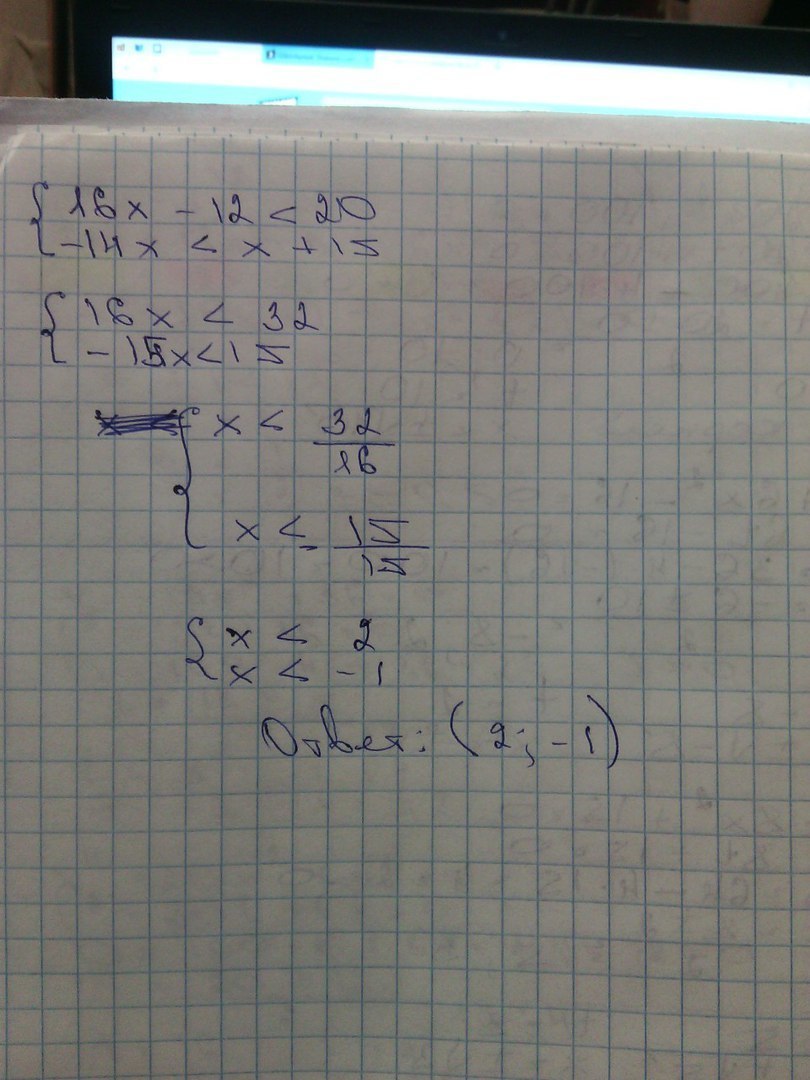 { 16x - 12 < 20
-14x < x + 15
{ 16x < 32
-15x < 15
{ x < 32/16
x < - 15/15
{ x < 2
x < -1
Ответ: (2; -1)